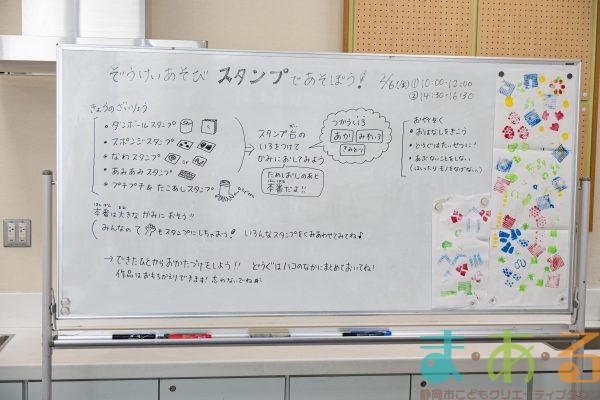 ぞうけいあそび スタンプであそぼう! 2/6(金) ① 10:00-12:00
② 14:30-16:30
きょうのざいりょう
・ダンボールスタンプ
・スポンジスタンプ
・なわスタンプ or
・あみあみスタンプ
・プチプチ&たこあしスタンプ
スタンプ台の
いろをつけて
かみにおしてみよう
ためしおしのあと
本番だよ!!
つかういろ
あか みずいろ
きみどり
・おはなしをきこう
・どうぐはたいせつに!
・あぶないことをしない
(はしったり モノをなげない)
本番は大きな かみに おそう!!
みんなの て もスタンプにしちゃおう! いろんなスタンプをくみあわせてみてね♪
→できたひとからおかたづけをしよう!! どうぐはハコのなかにまとめておいてね!
作品はおもちかえりできます!
ま・あ・る
静岡市こどもクリエイティブタウン